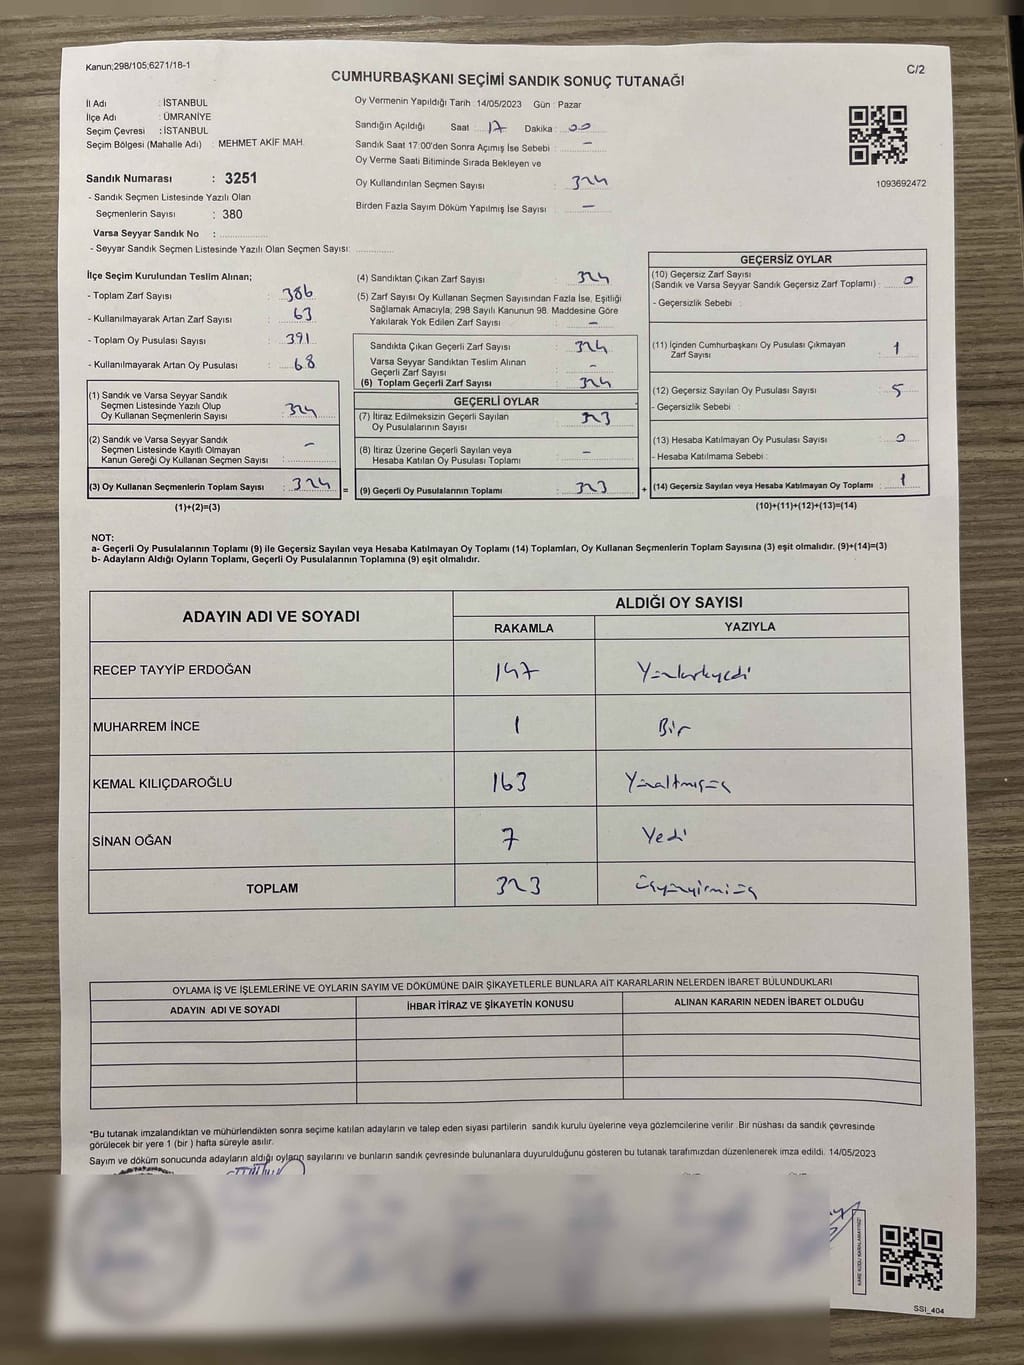 Kanun;298/105;6271/18-1
C/2
CUMHURBAŞKANI SEÇİMİ SANDIK SONUÇ TUTANAĞI
İl Adı : İSTANBUL
İlçe Adı : ÜMRANİYE
Seçim Çevresi : İSTANBUL
Seçim Bölgesi (Mahalle Adı) : MEHMET AKİF MAH.
Sandık Numarası : 3251
- Sandık Seçmen Listesinde Yazılı Olan
Seçmenlerin Sayısı : 380
Varsa Seyyar Sandık No :
- Seyyar Sandık Seçmen Listesinde Yazılı Olan Seçmen Sayısı:
Oy Vermenin Yapıldığı Tarih : 14/05/2023 Gün : Pazar
Sandığın Açıldığı Saat : 17 Dakika : 00
Sandık Saat 17:00'den Sonra Açımış İse Sebebi : -
Oy Verme Saati Bitiminde Sırada Bekleyen ve
Oy Kullandırılan Seçmen Sayısı : 324
Birden Fazla Sayım Döküm Yapılmış İse Sayısı : -
1093692472
İlçe Seçim Kurulundan Teslim Alınan;
- Toplam Zarf Sayısı : 386
- Kullanılmayarak Artan Zarf Sayısı : 63
- Toplam Oy Pusulası Sayısı : 391
- Kullanılmayarak Artan Oy Pusulası : 68
(1) Sandık ve Varsa Seyyar Sandık
Seçmen Listesinde Yazılı Olup
Oy Kullanan Seçmenlerin Sayısı : 324
(2) Sandık ve Varsa Seyyar Sandık
Seçmen Listesinde Kayıtlı Olmayan
Kanun Gereği Oy Kullanan Seçmen Sayısı : -
(3) Oy Kullanan Seçmenlerin Toplam Sayısı : 324 =
(1)+(2)=(3)
(4) Sandıktan Çıkan Zarf Sayısı : 324
(5) Zarf Sayısı Oy Kullanan Seçmen Sayısından Fazla İse, Eşitliği
Sağlamak Amacıyla; 298 Sayılı Kanunun 98. Maddesine Göre
Yakılarak Yok Edilen Zarf Sayısı : -
Sandıkta Çıkan Geçerli Zarf Sayısı : 324
Varsa Seyyar Sandıktan Teslim Alınan
Geçerli Zarf Sayısı : -
(6) Toplam Geçerli Zarf Sayısı : 324
GEÇERLİ OYLAR
(7) İtiraz Edilmeksizin Geçerli Sayılan
Oy Pusulalarının Sayısı : 323
(8) İtiraz Üzerine Geçerli Sayılan veya
Hesaba Katılan Oy Pusulası Toplamı : -
(9) Geçerli Oy Pusulalarının Toplamı : 323 +
GEÇERSİZ OYLAR
(10) Geçersiz Zarf Sayısı
(Sandık ve Varsa Seyyar Sandık Geçersiz Zarf Toplamı) : 0
- Geçersizlik Sebebi :
(11) İçinden Cumhurbaşkanı Oy Pusulası Çıkmayan
Zarf Sayısı : 1
(12) Geçersiz Sayılan Oy Pusulası Sayısı : 5
- Geçersizlik Sebebi :
(13) Hesaba Katılmayan Oy Pusulası Sayısı : 0
- Hesaba Katılmama Sebebi :
(14) Geçersiz Sayılan veya Hesaba Katılmayan Oy Toplamı : 1
(10)+(11)+(12)+(13)=(14)
NOT:
a- Geçerli Oy Pusulalarının Toplamı (9) ile Geçersiz Sayılan veya Hesaba Katılmayan Oy Toplamı (14) Toplamları, Oy Kullanan Seçmenlerin Toplam Sayısına (3) eşit olmalıdır. (9)+(14)=(3)
b- Adayların Aldığı Oyların Toplamı, Geçerli Oy Pusulalarının Toplamına (9) eşit olmalıdır.
ADAYIN ADI VE SOYADI ALDIĞI OY SAYISI
RAKAMLA YAZIYLA
RECEP TAYYİP ERDOĞAN 147
MUHARREM İNCE 1 Bir
KEMAL KILIÇDAROĞLU 163 Yüzaltmışüç
SİNAN OĞAN 7 Yedi
TOPLAM 323 üçyüzyirmiüç
OYLAMA İŞ VE İŞLEMLERİNE VE OYLARIN SAYIM VE DÖKÜMÜNE DAİR ŞİKAYETLERLE BUNLARA AİT KARARLARIN NELERDEN İBARET BULUNDUKLARI
ADAYIN ADI VE SOYADI İHBAR İTİRAZ VE ŞİKAYETİN KONUSU ALINAN KARARIN NEDEN İBARET OLDUĞU
*Bu tutanak imzalandıktan ve mühürlendikten sonra seçime katılan adayların ve talep eden siyasi partilerin sandık kurulu üyelerine veya gözlemcilerine verilir .Bir nüshası da sandık çevresinde
görülecek bir yere 1 (bir ) hafta süreyle asılır.
Sayım ve döküm sonucunda adayların aldığı oyların sayılarını ve bunların sandık çevresinde bulunanlara duyurulduğunu gösteren bu tutanak tarafımızdan düzenlenerek imza edildi. 14/05/2023
SSI_404